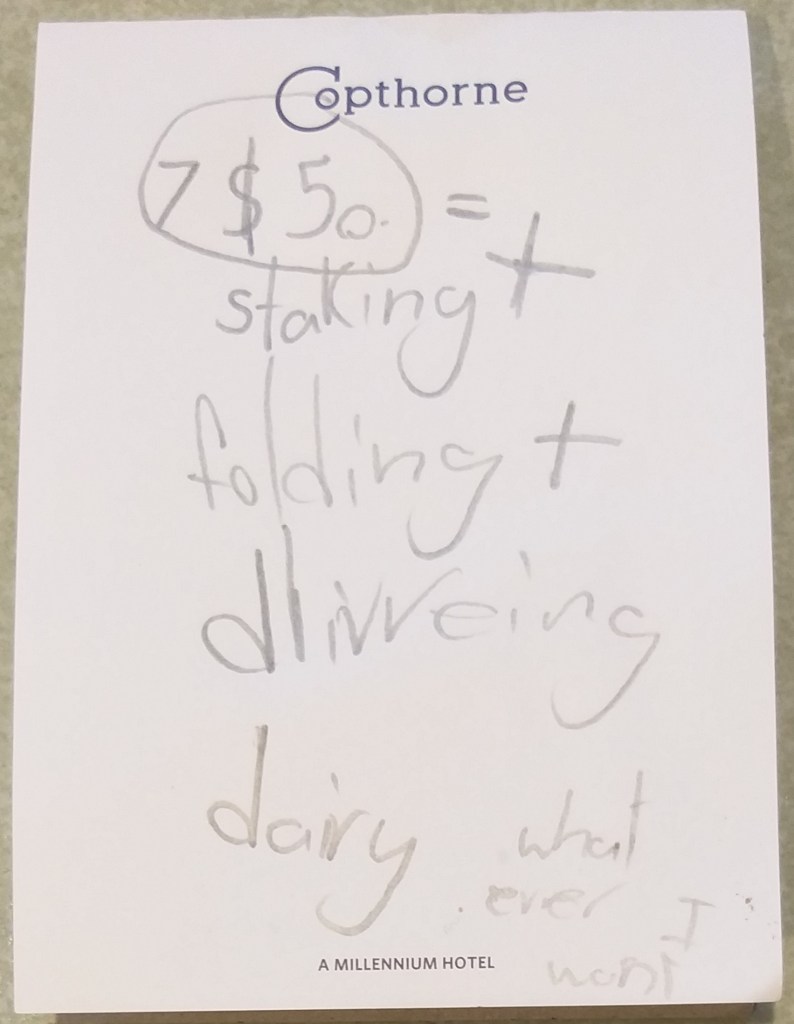 Copthorne
7 $ 50. =
staking +
folding +
dlivveing
dairy what
ever I
want
A MILLENNIUM HOTEL